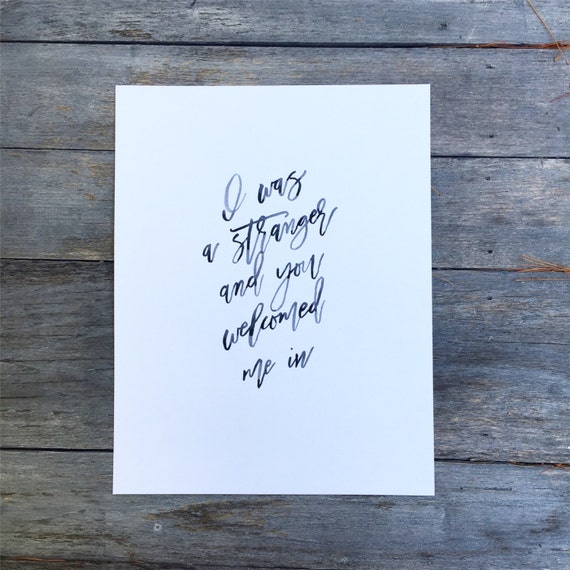 I was
a stranger
and you
welcomed
me in